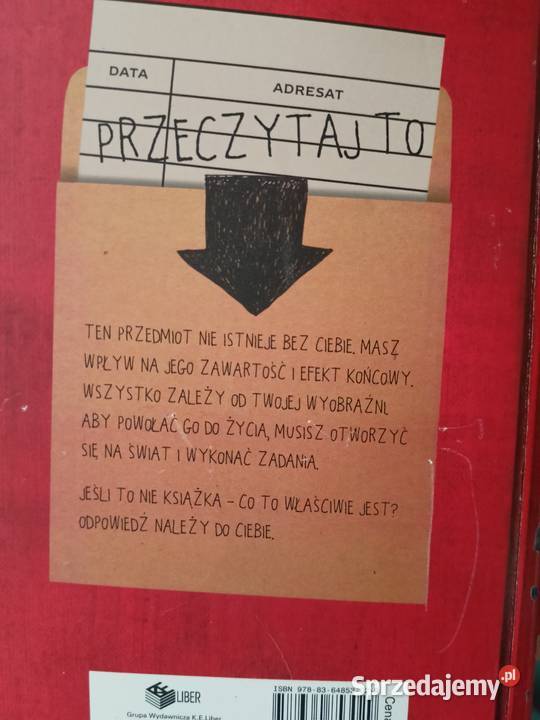 DATA
ADRESAT
PRZECZYTAJ TO
TEN PRZEDMIOT NIE ISTNIEJE BEZ CIEBIE. MASZ
WPŁYW NA JEGO ZAWARTOŚĆ I EFEKT KOŃCOWY.
WSZYSTKO ZALEŻY OD TWOJEJ WYOBRAŹNI.
ABY POWOŁAĆ GO DO ŻYCIA, MUSISZ OTWORZYĆ
SIĘ NA ŚWIAT I WYKONAĆ ZADANIA.
JEŚLI TO NIE KSIĄŻKA – CO TO WŁAŚCIWIE JEST?
ODPOWIEDŹ NALEŻY DO CIEBIE.
LIBER
Grupa Wydawnicza K.E.Liber
ISBN 978-83-6485
Cena
Sprzedajemy.pl